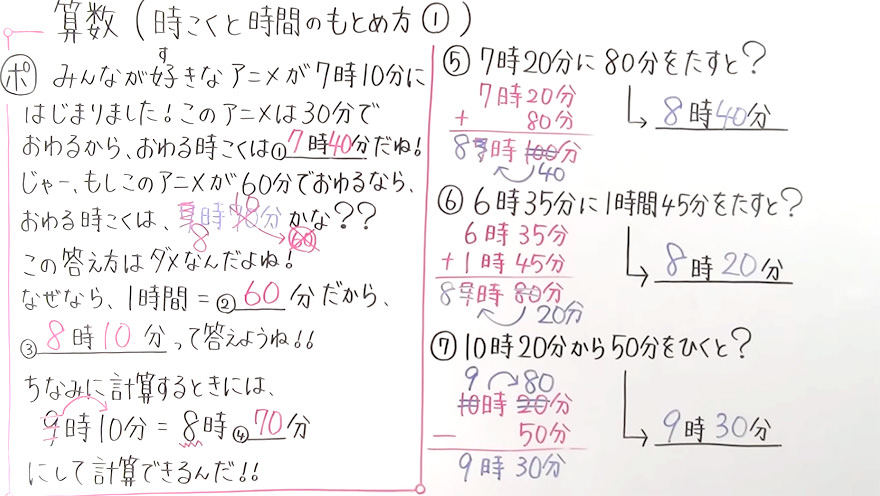 算数(時こくと時間のもとめ方①)
ポ みんなが好きなアニメが7時10分に
す
はじまりました!このアニメは30分で
おわるから、おわる時こくは①7時40分だね!
じゃー、もしこのアニメが60分でおわるなら、
おわる時こくは、7時70分かな??
10
8
60
この答え方はダメなんだよね!
なぜなら、1時間=②60分だから、
③8時10分って答えようね!!
ちなみに計算するときには、
9時10分=8時④70分
にして計算できるんだ!!
⑤7時20分に80分をたすと?
7時20分
+ 80分
8 7時100分
40
8時40分
⑥6時35分に1時間45分をたすと?
6時35分
+1時45分
8 7時80分
20分
8時20分
⑦10時20分から50分をひくと?
9 80
10時20分
- 50分
9時30分
9時30分